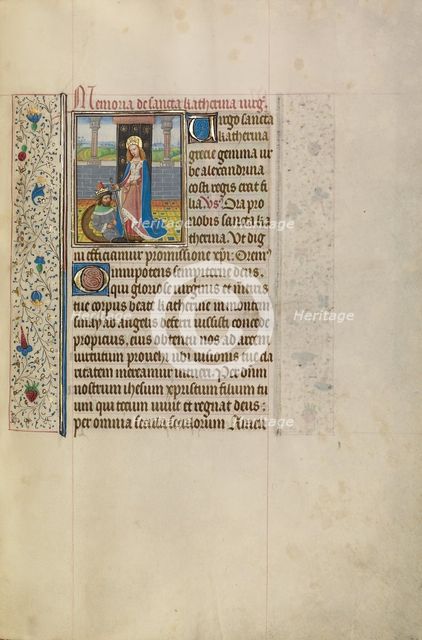 Memoria de sancta katherina virg̃
Virgo sancta
katherina
grecie gemma ur
be alexandrina
costi regis erat fi
lia Vs̃ Ora pro
nobis sancta ka
therina. Ut dig
ni efficiamur promissione xp̃i. Orem9
Omnipotens sempiterne deus.
Qui gloriose virginis et
corpus beate katherine in montem
sinay ab angelis deferri iussisti concede
propicius, eius obtentu nos ad arcem
virtutum provehi ubi visionis tue cla
ritatem mereamur intueri. Per dñm
nostrum ihesum xp̃istum filium tu
um qui tecum vivit et regnat deus:
per omnia secula seculorum Amen
Heritage
Heritage
Heritage
Heritage
Heritage